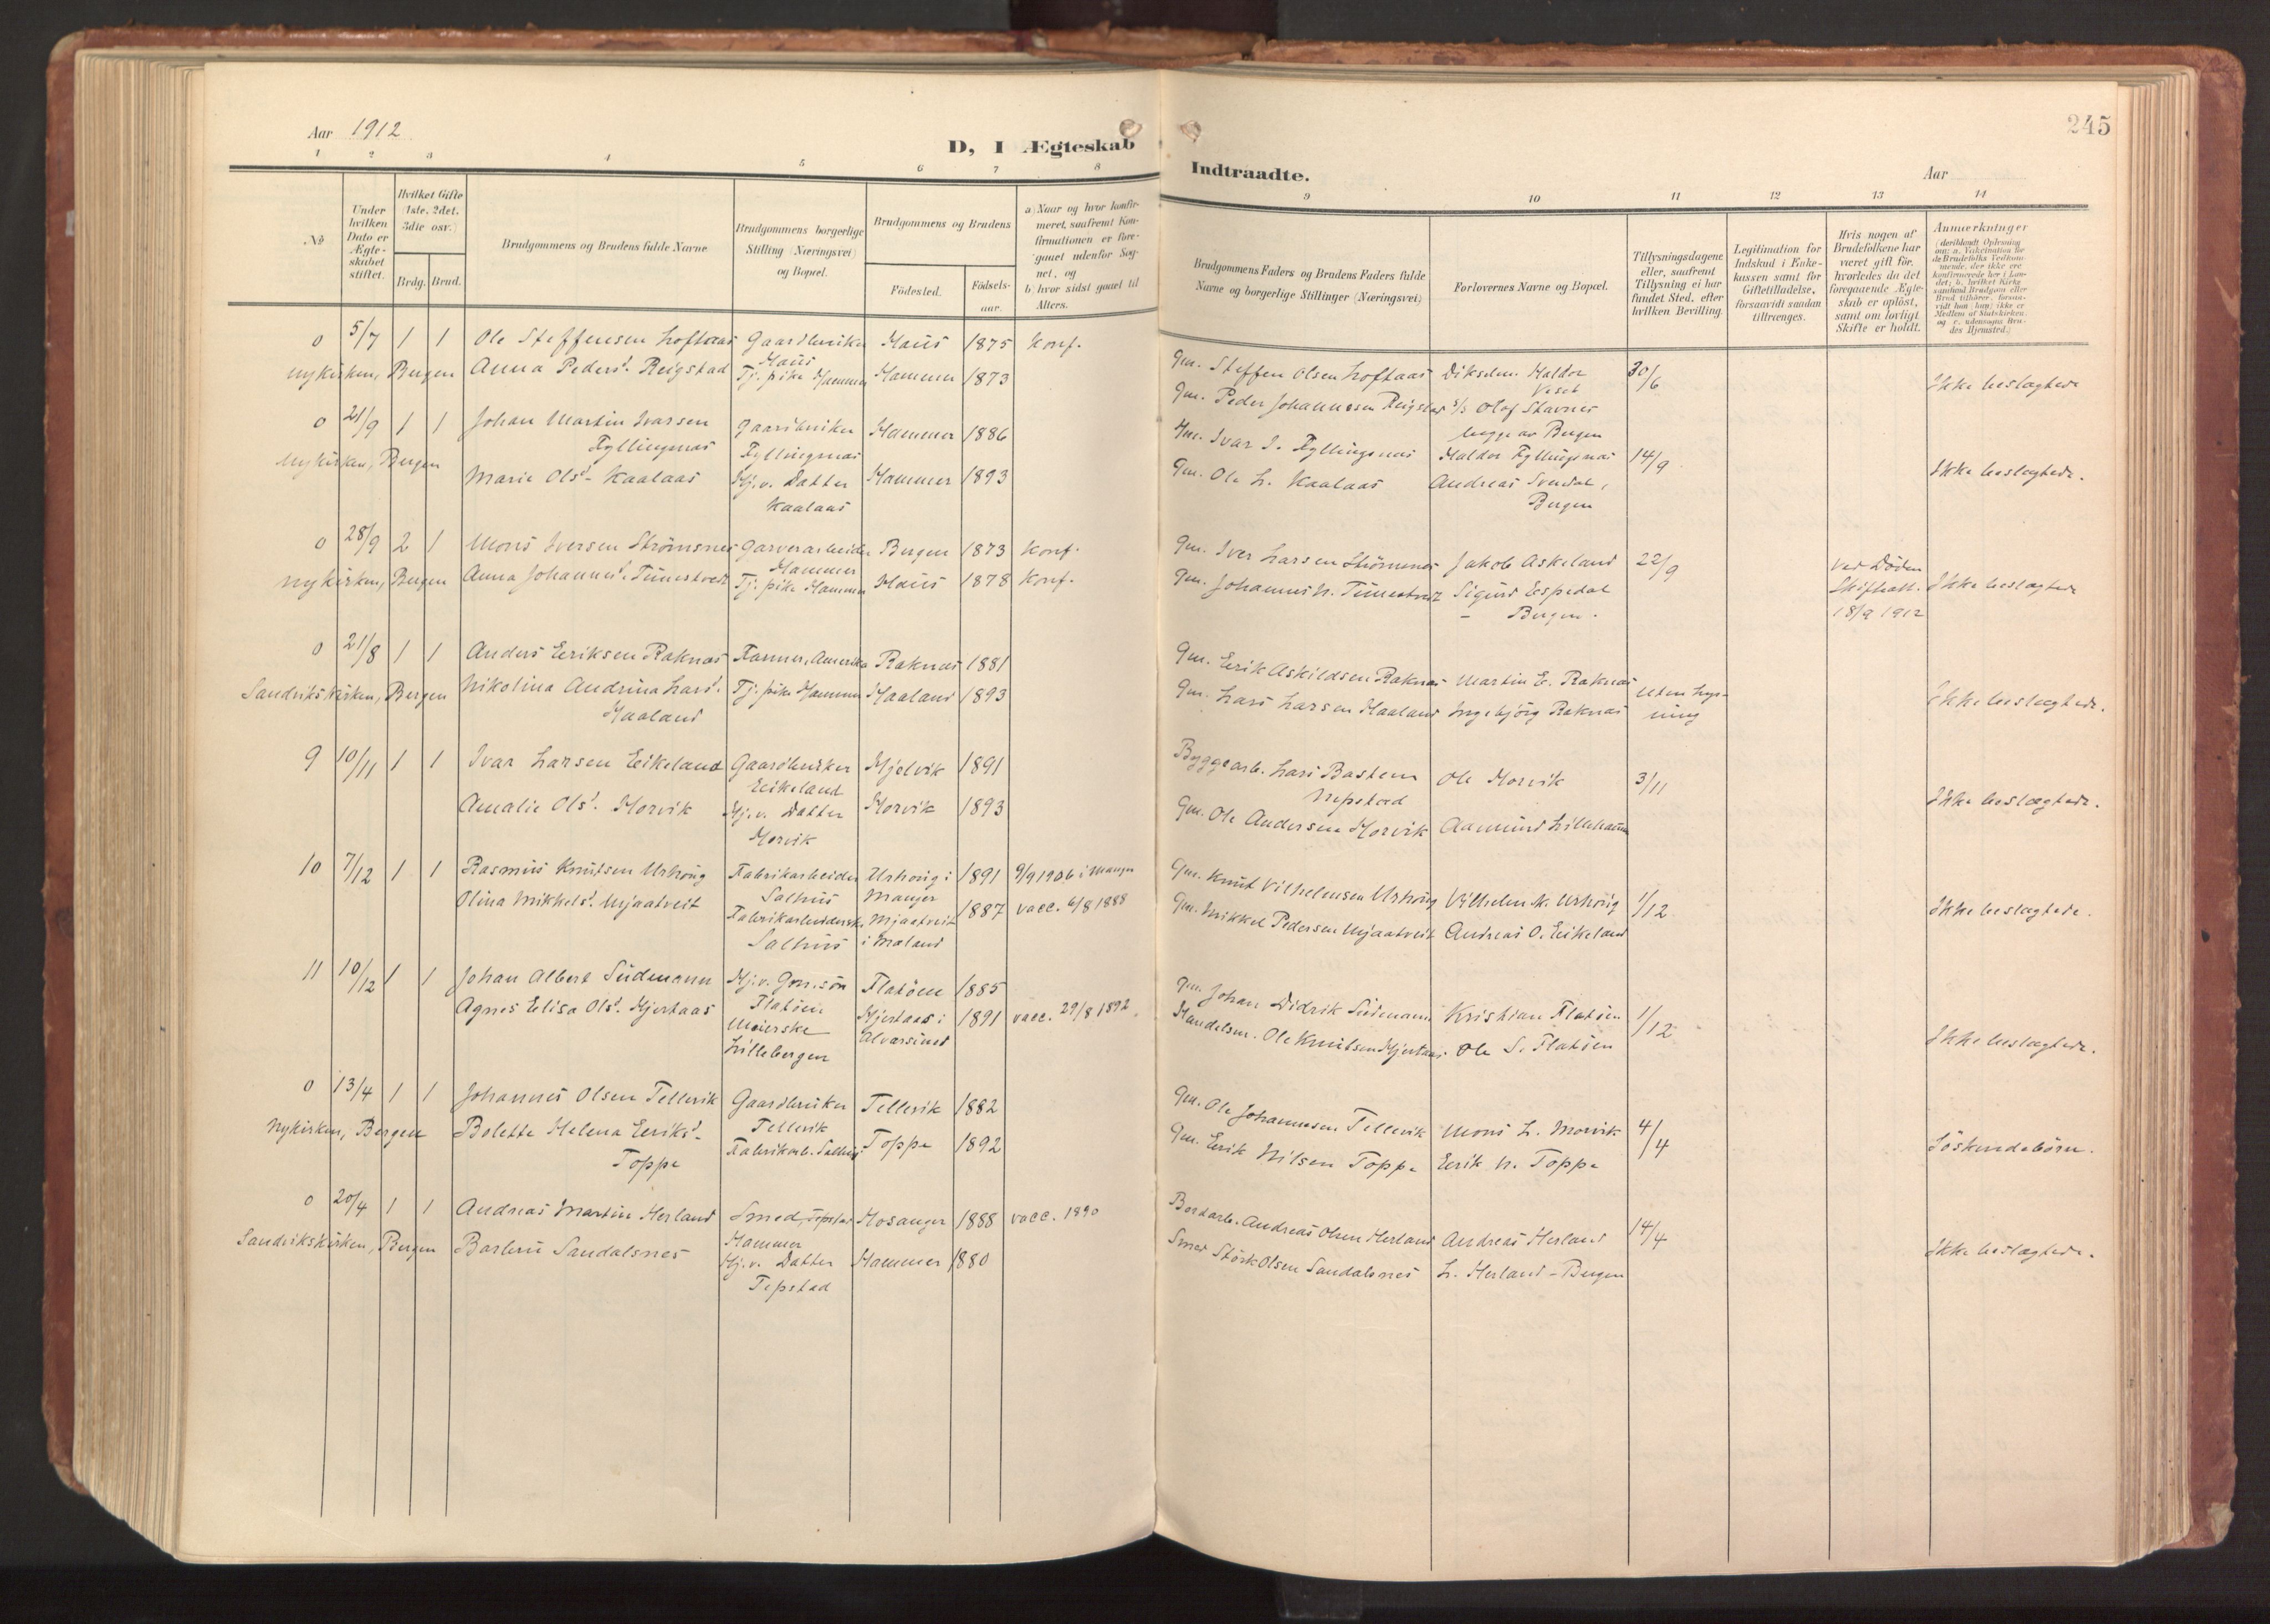 Aar 1912
D, I Ægteskab
Indtraadte.
Aar
245
1 2 3 4 5 6 7 8 9 10 11 12 13 14
No
Under hvilken Dato er Ægteskabet stiftet.
Hvilket Gifte (1ste, 2det, 3die osv.)
Brdg. Brud.
Brudgommens og Brudens fulde Navne
Brudgommens borgerlige Stilling (Næringsvei) og Bopæl.
Brudgommens og Brudens
Fødested.
Fødselsaar.
a) Naar og hvor konfirmeret, saafremt Konfirmationen er foregaaet udenfor Sognet, og
b) hvor sidst gaaet til Alters.
Brudgommens Faders og Brudens Faders fulde Navne og borgerlige Stillinger (Næringsvei)
Forlovernes Navne og Bopæl.
Tillysningsdagene eller, saafremt Tillysning ei har fundet Sted, efter hvilken Bevilling.
Legitimation for Indskud i Enkekassen samt for Giftetilladelse, forsaavidt saadan tiltrænges.
Hvis nogen af Brudefolkene har været gift før, hvorledes da det foregaaende Ægteskab er opløst, samt om lovligt Skifte er holdt.
Anmærkninger
(deriblandt Oplysning om: a. Vakcination for de Brudefolks Vedkommende, der ikke ere konfirmerede her i Landet; b. hvilket Kirkesamfund Brudgom eller Brud tilhører, forsaavidt han (hun) ikke er Medlem af Statskirken, og c. udensogns Brudes Hjemsted.)
0 5/7 1 1 Ole Steffensen Loftaas Gaardbruker Haus 1875 Konf.
Haus
Nykirken, Bergen Anna Pedersd. Reigstad Tj. pike Hammer Hammer 1873
Gm. Steffen Olsen Loftaas Dikselm. Haldor Veset 30/6
Gm. Peder Johannesen Reigstad s/s Olaf Stavnes
begge av Bergen
Ikke beslægtede
0 21/9 1 1 Johan Martin Ivarsen Gaardbruker Hammer 1886
Fyllingsnæs Fyllingsnæs
Nykirken, Bergen
Marie Olsd. Kaalaas Hj.v. Datter Hammer 1893
Kaalaas
Gm. Ivar J. Fyllingsnæs Haldor Fyllingsnæs 14/9
Gm. Ole L. Kaalaas Andreas Svendal,
Bergen
Ikke beslægtede.
0 28/9 2 1 Mons Iversen Strømsnes Garverarbeider Bergen 1873 Konf.
Hammer
Nykirken, Bergen Anna Johannesd. Tunestvedt Tj. pike Hammer Haus 1878 Konf.
Gm. Iver Larsen Strømsnes Jakob Askeland 22/9
Gm. Johannes N. Tunestvedt Sigurd Espedal
- Bergen.
Ved Døden
Skifteatt.
18/9 1912
Ikke beslægtede
0 21/8 1 1 Anders Eriksen Raknæs Farmer, Amerika Raknæs 1881
Sandvikskirken, Bergen Nikolina Andrina Larsd. Tj. pike Hammer Haaland 1893
Haaland
Gm. Eerik Askildsen Raknæs Martin E. Raknæs
Gm. Lars Larsen Haaland Ingebjørg Raknæs
Uten lysning
Ikke beslægtede.
9 10/11 1 1 Ivar Larsen Eikeland Gaardbruker Hjelvik 1891
Eikeland
Amalie Olsd. Horvik Hj.v. Datter Horvik 1893
Horvik
Byggearb. Lars Basten Ole Horvik 3/11
Nepstad
Gm. Ole Andersen Horvik Aamund Lillehamn
Ikke beslægtede.
10 7/12 1 1 Rasmus Knutsen Urhoug Fabrikarbeider Urhoug i 1891 9/9 1906 i Manger
Salhus Manger
Olina Mikkelsd. Mjaatveit Fabrikarbeiderske Mjaatveit 1887 vacc. 6/8 1888
Salhus i Mæland
Gm. Knut Vilhelmsen Urhoug Vilhelm K. Urhoug 1/12
Gm. Mikkel Pedersen Mjaatveit Andreas O. Eikeland
Ikke beslægtede.
11 10/12 1 1 Johan Albert Südmann Hj.v. Gm.søn Flatøen 1885
Flatøen
Agnes Elisa Olsd. Hjertaas Meierske Hjertaas i 1891 vacc. 29/8 1892.
Lillebergen Alværsund
Gm. Johan Didrik Südmann Kristian Flatøen 1/12
Handelsm. Ole Knutsen Hjertaas Ole S. Flatøen
Ikke beslægtede.
0 13/4 1 1 Johannes Olsen Tellevik Gaardbruker Tellevik 1882
Tellevik
Nykirken, Bergen Bolette Helena Eeriksd. Fabrikarb. Salhus Toppe 1892
Toppe
Gm. Ole Johannesen Tellevik Mons L. Morvik 4/4
Gm. Eerik Nilsen Toppe Eerik N. Toppe
Søskendebørn.
0 20/4 1 1 Andreas Martin Herland Smed, Tepstad Hosanger 1888 vacc. 1890
Hammer
Sandvikskirken, Bergen Barbru Sandalsnes Hj.v. Datter Hammer 1880
Tepstad
Bordarb. Andreas Olsen Herland Andreas Herland 14/4
Smed Størk Olsen Sandalsnes L. Herland - Bergen
Ikke beslægtede.